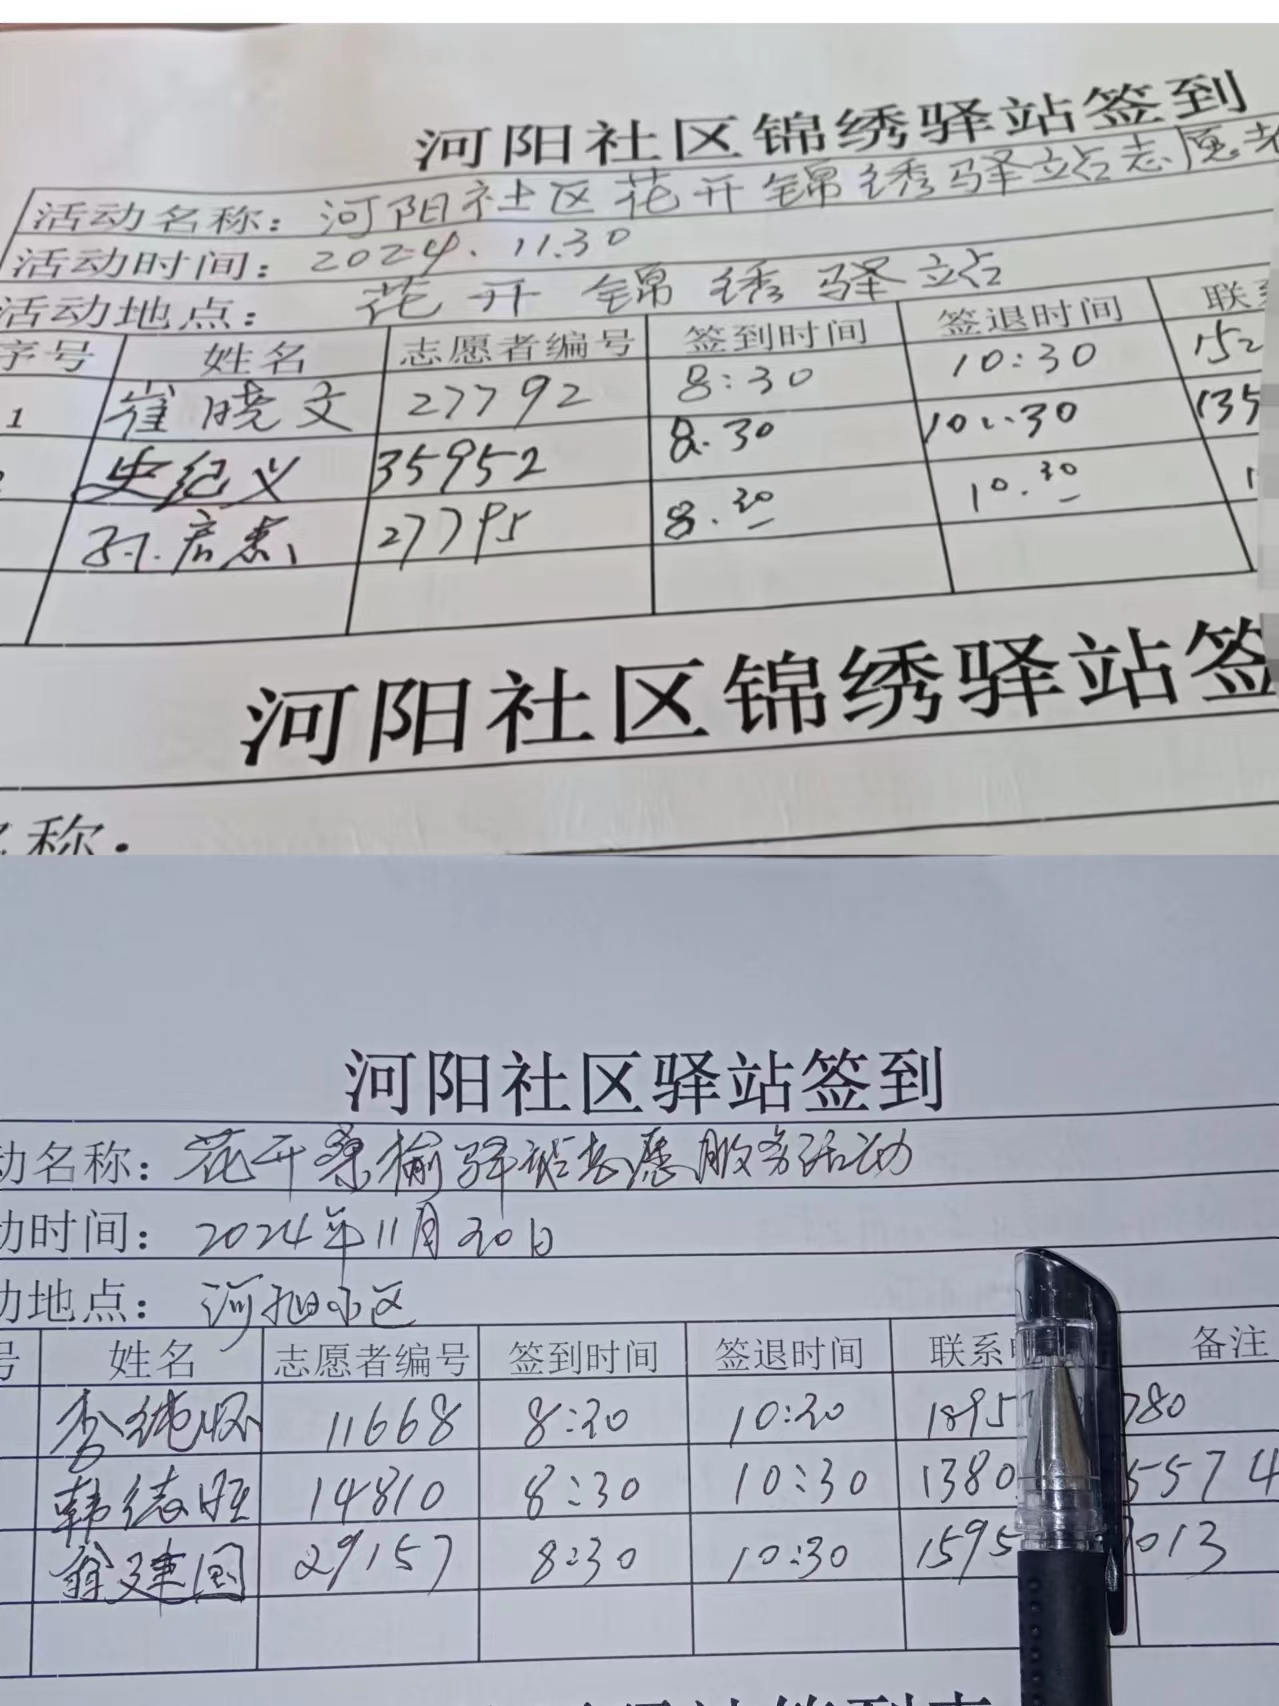 河阳社区锦绣驿站签到
活动名称：河阳社区花开锦绣驿站志愿者
活动时间：2024.11.30
活动地点：花开锦绣驿站
序号 姓名 志愿者编号 签到时间 签退时间 联系
1 崔晓文 27792 8:30 10:30 152
史纪义 35952 8.30 10:30 135
27795 8.30 10.30 1
河阳社区锦绣驿站签
名称：
河阳社区驿站签到
动名称：花开桑榆驿站志愿服务活动
动时间：2024年11月30日
动地点：河阳小区
号 姓名 志愿者编号 签到时间 签退时间 联系 备注
李纯怀 11668 8:30 10:30 1895 780
韩德旺 14810 8:30 10:30 1380 5574
翁建国 29157 8:30 10:30 1595 013